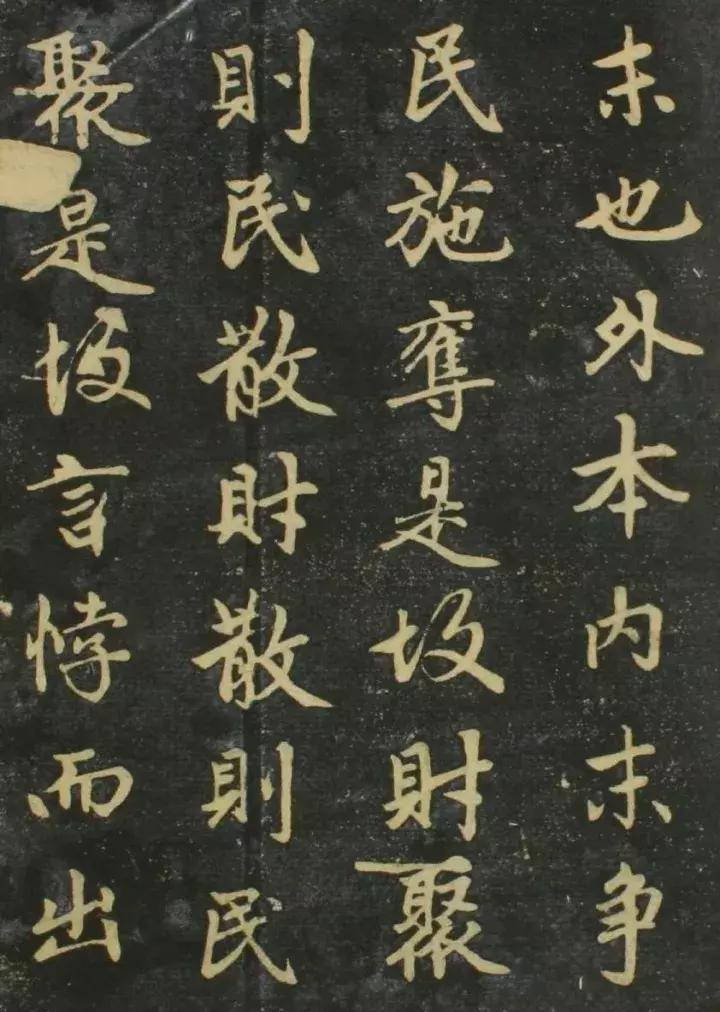 末也外本内末争
民施奪是故財聚
則民散財散則民
聚是故言悖而出